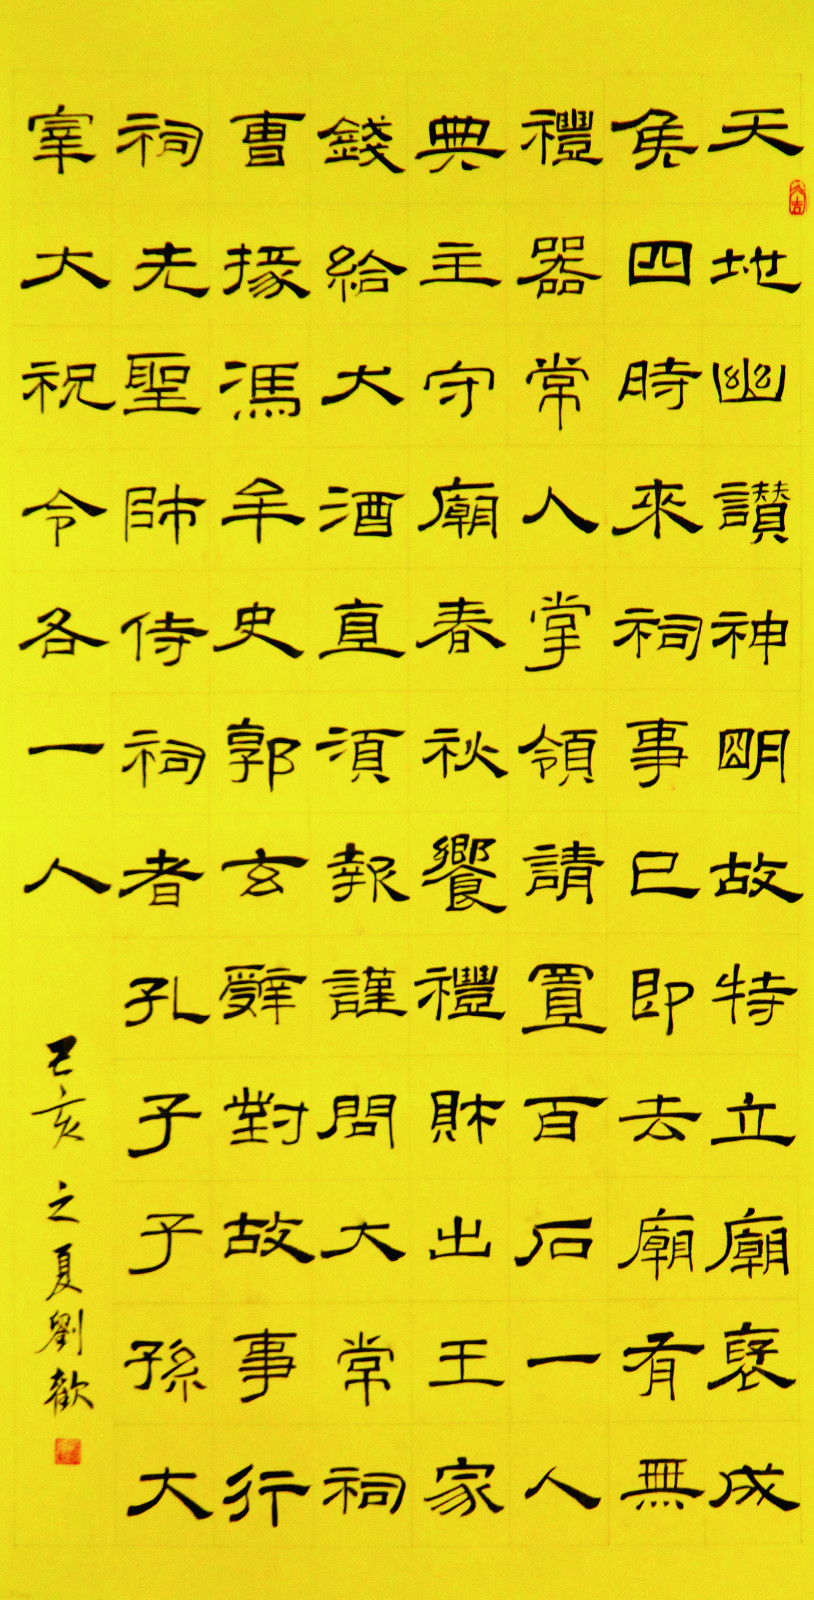 天地幽讃神明故特立廟褒成
侯四時來祠事已即去廟有無
禮器常人掌領請置百石一人
典主守廟春秋饗禮財出王家
錢給犬酒直須報謹問大常祠
曹掾馮牟史郭玄辭對故事行
祠先聖師侍祠者孔子子孫大
宰大祝令各一人
己亥之夏劉歡